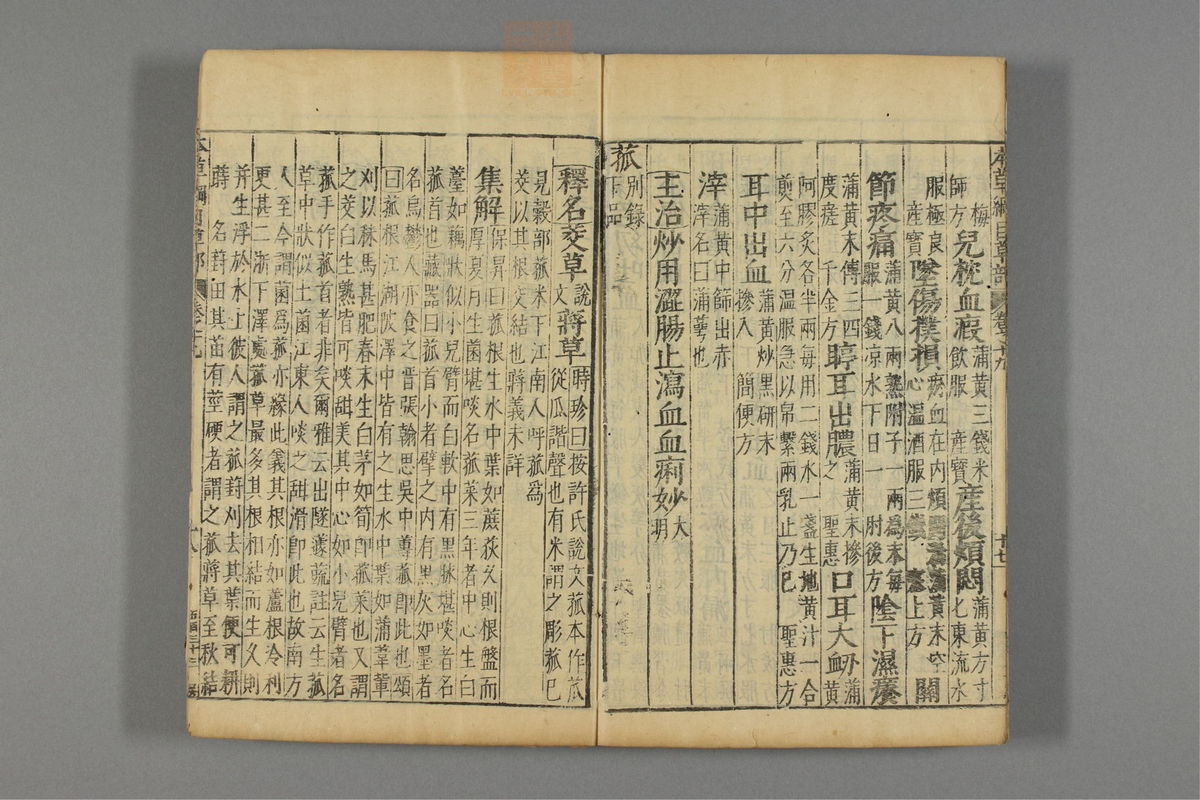 本草綱目草部 卷之十九 十七
梅師方 兒枕血瘕 蒲黃三錢米飲服 產寶 產後煩悶 蒲黃方寸匕東流水
服極良 產寶 墜傷撲損 瘀血在內煩 蒲黃末空心溫酒服三 上方 關
節疼痛 蒲黃八兩熟附子一兩為末每服一錢凉水下日一 肘後方 陰下濕痒
蒲黃末傅三四度瘥 千金方 聤耳出膿 蒲黃末摻之 聖惠 口耳大衂 蒲黃
阿膠炙各半兩每用二錢水一盞生地黃汁一合煎至六分溫服急以帛繫兩乳止乃已 聖惠方
耳中出血 蒲黃炒黑研末摻入 簡便方
滓 蒲黃中篩出赤滓名曰蒲蕚也
主治炒用澀腸止瀉血血痢妙 大明
菰 別錄下品
釋名茭草 說文 蔣草 時珍曰按許氏說文菰本作苽從瓜諧聲也有米謂之彫菰已
見穀部菰米下江南人呼菰為茭以其根交結也蔣義未詳
集解 保昇曰菰根生水中葉如蔗荻久則根盤而厚夏月生菌堪啖名菰菜三年者中心生白
薹如藕狀似小兒臂而白軟中有黑脉堪啖者名菰首也藏器曰菰首小者擘之內有黑灰如墨者
名烏鬱人亦食之晉張翰思吳中蓴菰即此也頌曰菰根江湖陂澤中皆有之生水中葉如蒲葦輩
刈以秣馬甚肥春末生白茅如筍即菰菜也又謂之茭白生熟皆可啖甜美其中心如小兒臂者名
菰手作菰首者非矣爾雅云出隧蘧蔬註云生菰草中狀似土菌江東人啖之甜滑即此也故南方
人至今謂菌為菰亦緣此義其根亦如蘆根冷利更甚二浙下澤處菰草最多其根相結而生久則
并生浮於水上彼人謂之菰葑刈去其葉便可耕蒔 名葑田其苗有莖硬者謂之菰蔣草至秋結
本草綱目草部 卷之十九 十八